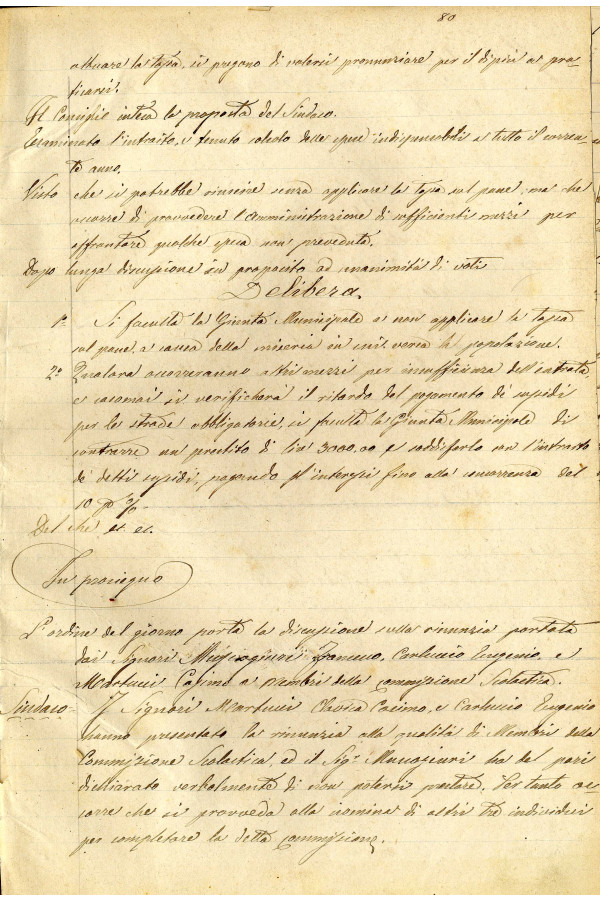 80
attuare la tassa, si pregano di volersi pronunziare per il dipiù a pra-
ticarsi.
Il Consiglio intesa la proposta del Sindaco.
Esaminato l'introito, e tenuto calcolo delle spese indispensabili a tutto il corren-
te anno,
Visto che si potrebbe riuscire senza applicare la tassa sul pane; ma che
occorre di provvedere l'Amministrazione di sufficienti mezzi per
affrontare qualche spesa non preveduta.
Dopo lunga discussione in proposito ad unanimità di voti
Delibera
1° Si facultà la Giunta Municipale a non applicare la tassa
sul pane, a causa della miseria in cui versa la popolazione.
2° Qualora occorreranno altri mezzi per insufficienza dell'entrata
e casomai si verificherà il ritardo del pagamento de' sussidi
per le strade obbligatorie, si facultà la Giunta Municipale di
contrarre un prestito di lire 3000,00 e soddisfarlo con l'introito
de' detti sussidi, pagando gl'interessi fino alla concorrenza del
10 p %.
Del che ec. ec.
In prosieguo
L'ordine del giorno porta la discussione sulla rinunzia portata
dai Signori Muscogiuri Carluccio Eugenio, e
Martucci Cosimo a membri della commissione Scolastica.
Sindaco - I Signori Martucci Cosimo, e Carluccio Eugenio
hanno presentato la rinunzia alla qualità di Membri della
Commissione Scolastica, ed il Sig. Muscogiuri ha del pari
dichiarato verbalmente di non potersi prestare. Per tanto oc-
corre che si provveda alla nomina di altri tre individui
per completare la detta commissione.